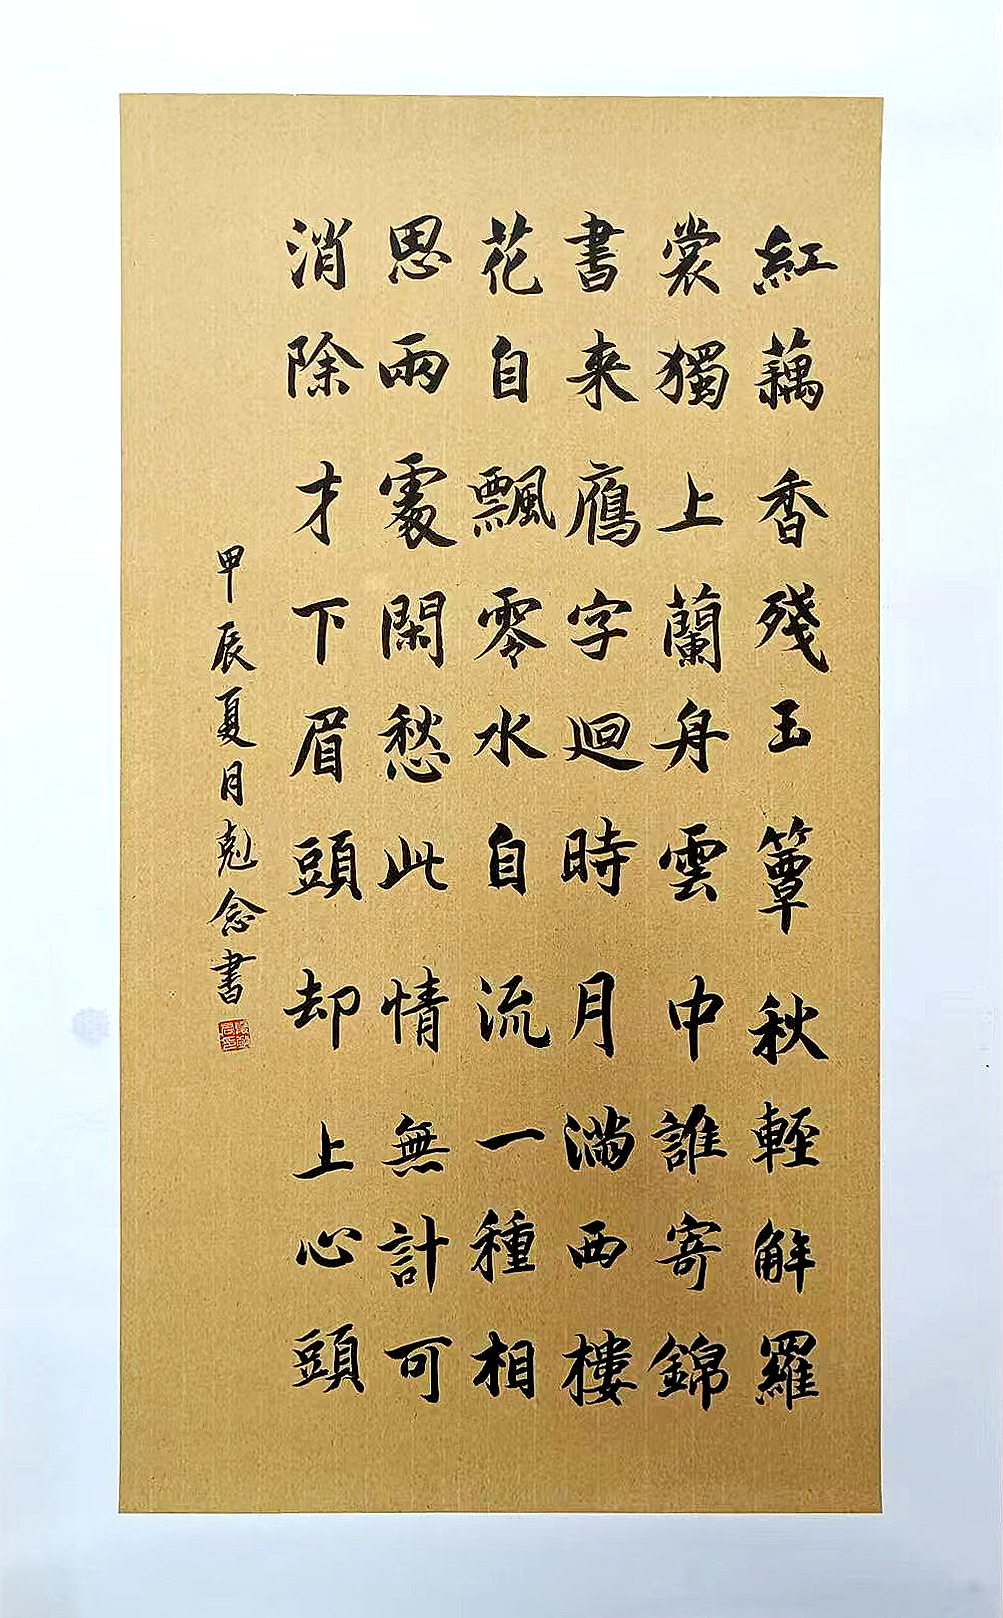 紅藕香殘玉簟秋輕解羅
裳獨上蘭身雲中誰寄錦
書来鴈字迴時月滿西樓
花自飄零水自流一種相
思兩處閑愁此情無計可
消除才下眉頭却上心頭
甲辰夏月克念書